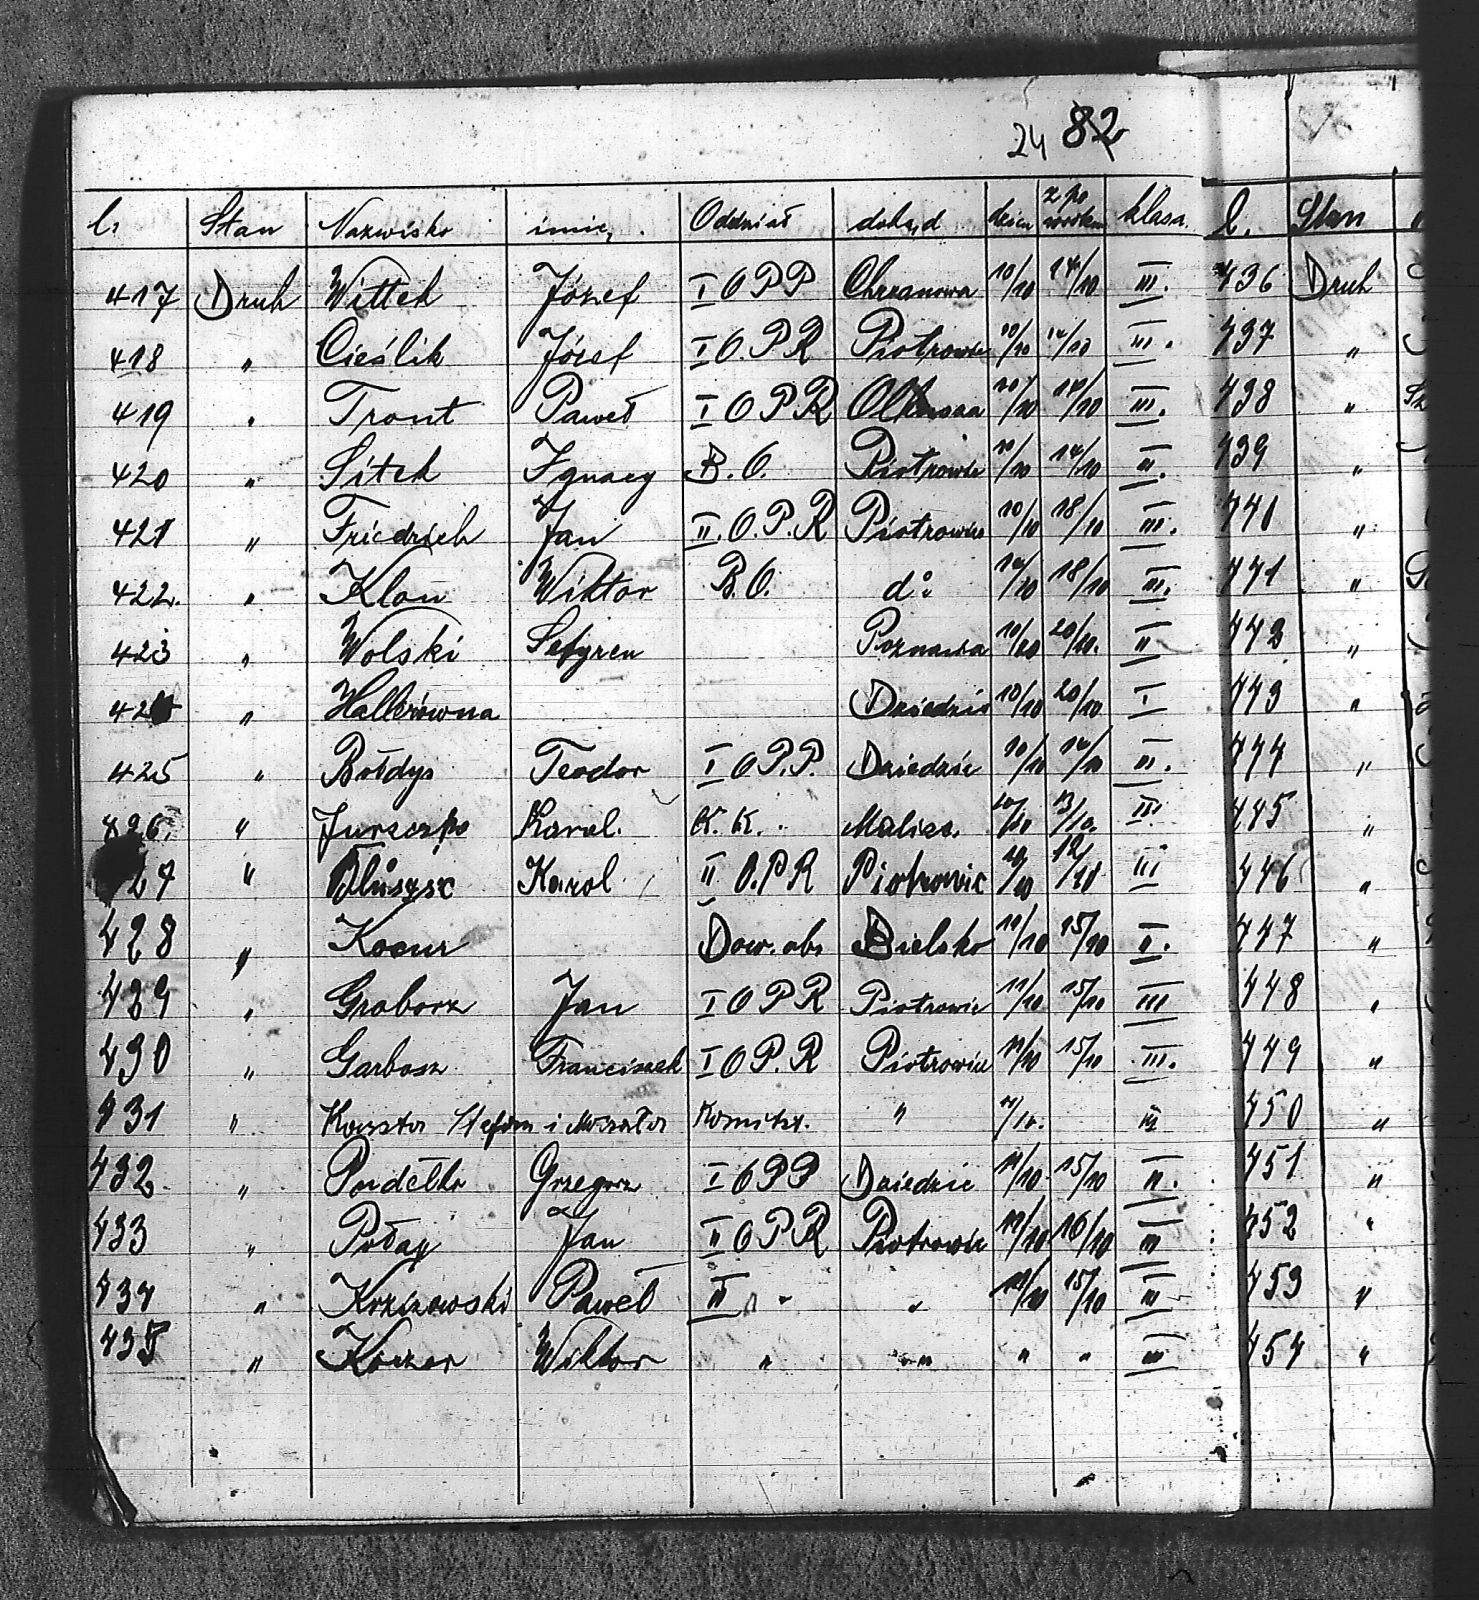 24 82
l. Stan Nazwisko imię Oddział dokąd dzień z powrotem klasa. l. Stan
417 Druh Wittek Józef I O P P Chrzanowa 10/10 14/10 III. 436 Druh
418 " Cieślik Józef I O. P R Piotrowic 10/10 14/10 III. 437 "
419 " Tront Paweł I O P R 10/10 14/10 III. 438 "
420 " Sitek Ignacy B. O. Piotrowic 10/10 14/10 II. 439 "
421 " Friedrich Jan II. O. P. R Piotrowic 10/10 18/10 III. "
422. " Kloń Wiktor B. O. do 10/10 18/10 III. 441 "
423 " Wolski Poznania 10/10 20/10. II 442 "
" Hallerówna Dziedzic 10/10 20/10 I 443 "
425 " Bołdys Teodor I O P. P. Dziedzic 10/10 14/10 III. 444 "
426. " Karol. K. K. 10/10 13/10. III 445 "
27 " Karol II O. P R Piotrowic 10/10 12/10 III 446 "
428 " Kocur Dow. obs Bielsko 11/10 15/10 II. 447 "
429 " Graborz Jan I O P R Piotrowic 11/10 15/10 III 448 "
430 " Garbosz Franciszek I O P. R Piotrowic 11/10 15/10 III. 449 "
431 " Stefan i " 11/10. III 450 "
432 " Grzegorz I O P P Dziedzic 11/10 15/10 II. 451 "
433 " Jan II O P. R Piotrowic 11/10 16/10 III 452 "
434 " Paweł II " " 11/10 15/10 III 453 "
435 " Wiktor " " " " III 454 "